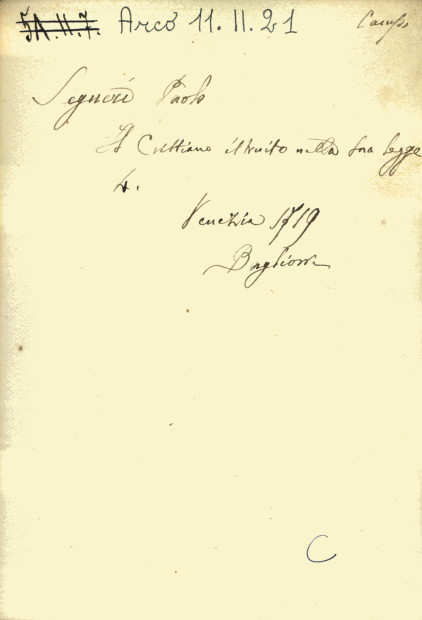 5A.II.7. Arcó 11.II.21
Segneri Paolo
Il Cristiano istruito nella sua legge
4.
Venezia 1719
Baglioni
C